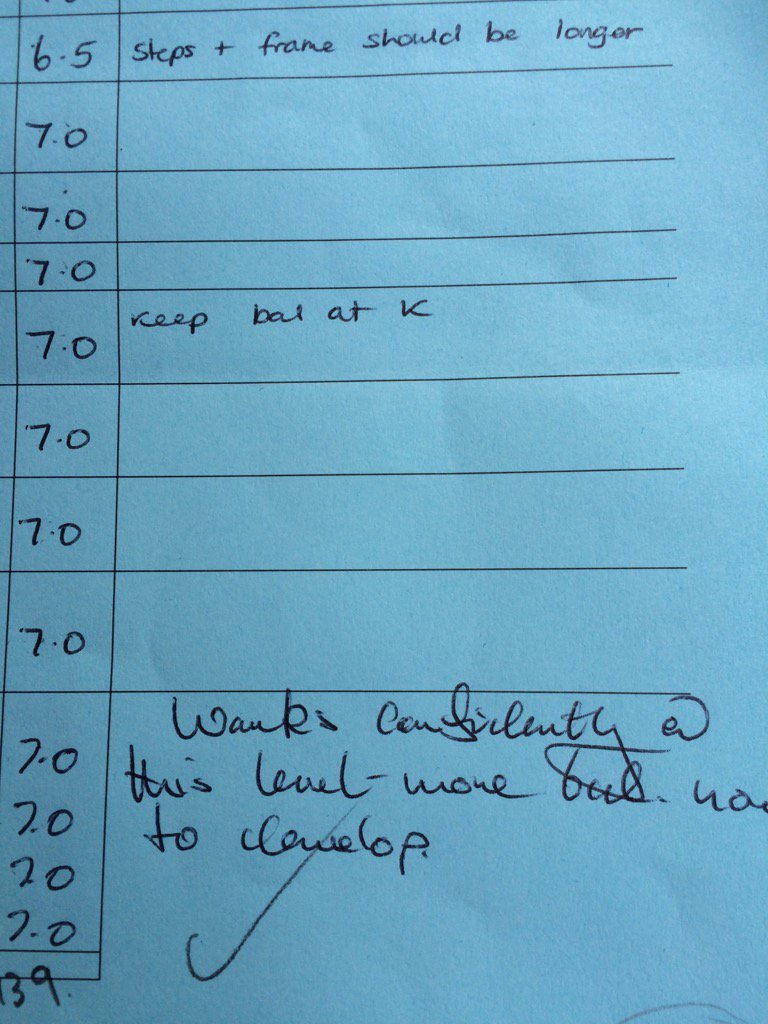 6.5 steps + frame should be longer
7.0
7.0
7.0
7.0 keep bal at K
7.0
7.0
7.0
7.0 Works confidently @
7.0 this level - more bal. now
7.0 to develop.
7.0
139.